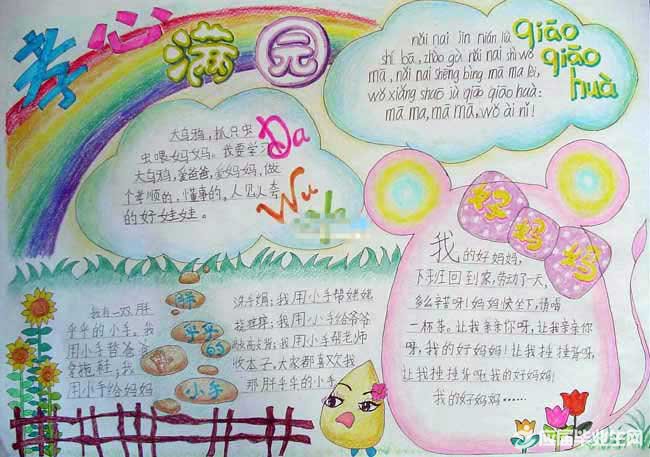 孝心满园
大乌鸦,抓只虫
虫喂妈妈。我要学习
大乌鸦,爱爸爸,爱妈妈,做
个孝顺的,懂事的,人见人夸
的好娃娃。
Da
Wu
qiāo
qiāo
huà
nǎi nai jīn nián liù
shí bā,
mā, nǎi nai shēng bìng mā ma
wǒ xiǎng shuō jù qiāo qiāo huà:
mā ma, mā mā, wǒ ài nǐ!
好妈妈
我的好妈妈,
下班回到家,劳动了一天,
多么辛苦呀!妈妈快坐下,请喝
一杯茶。让我亲亲你呀,让我亲亲你
呀,我的好妈妈!让我捶捶背呀,
让我捶捶背呀,我的好妈妈!
我的好妈妈……
胖
乎乎
的
小手
我有一双胖
乎乎的小手。我
用小手替爸爸
拿拖鞋;我
用小手给妈妈
洗手绢;我用小手帮姥姥
挠痒痒;我用小手给爷爷
我用小手帮老师
收本子,大家都喜欢我
那胖乎乎的小手
应届毕业生网